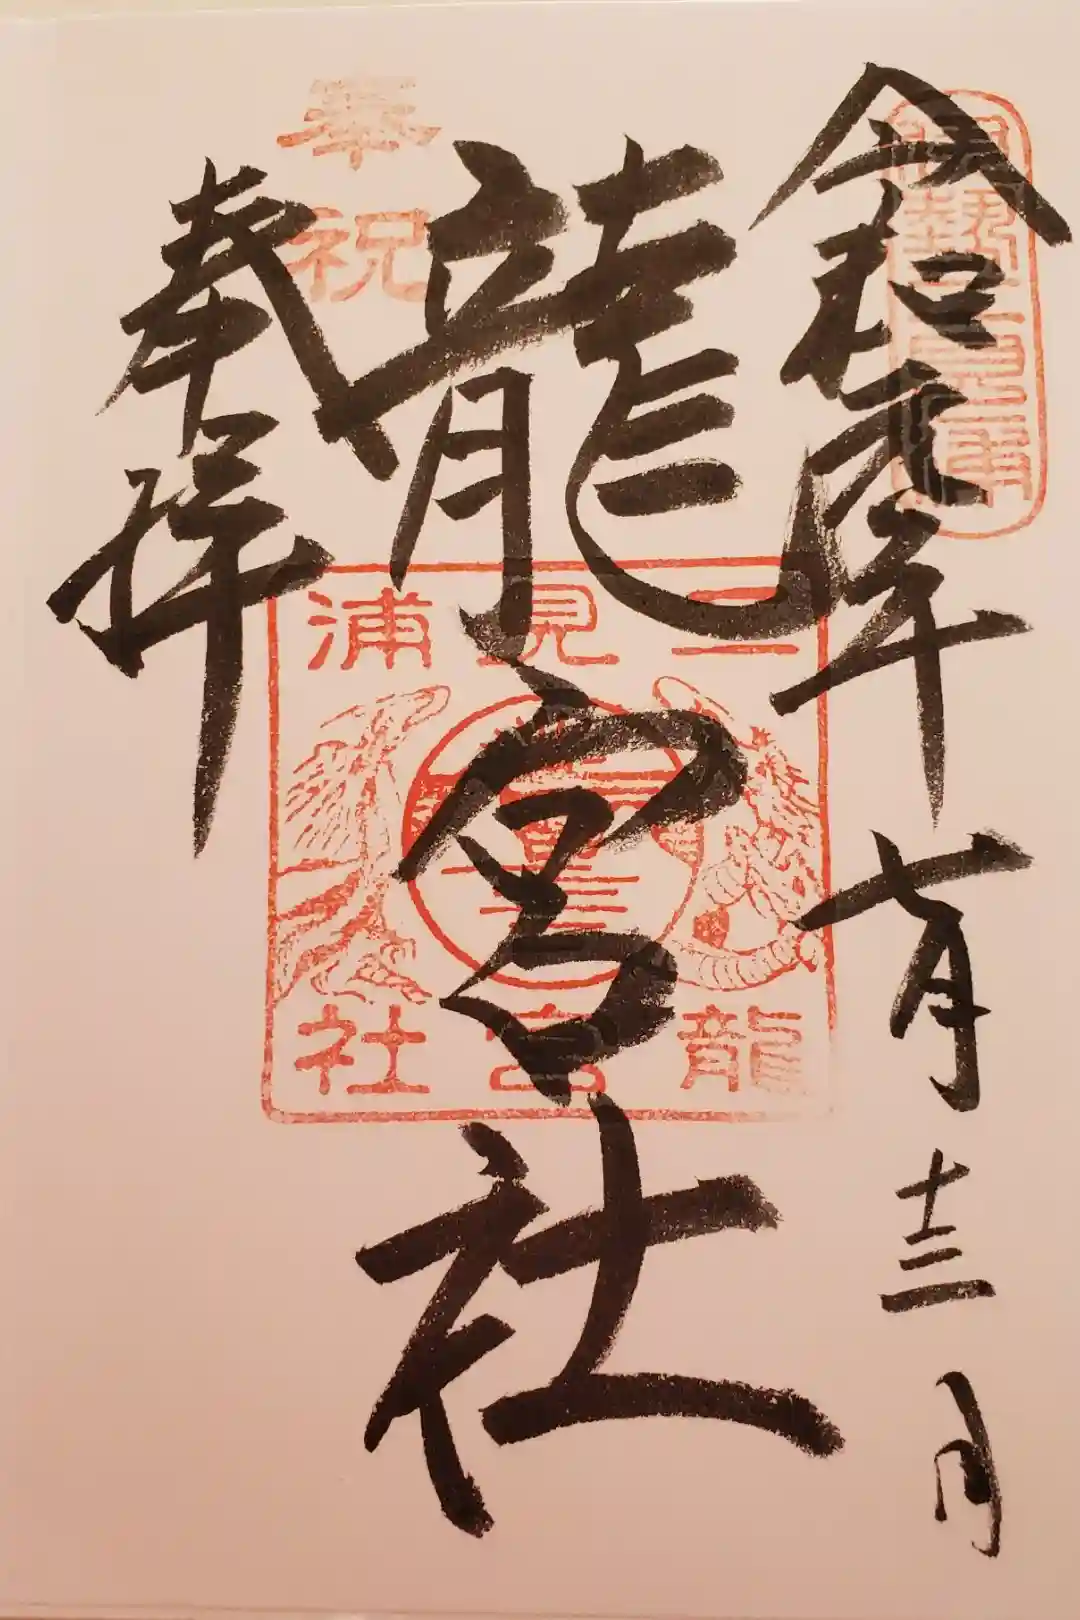 令和元年七月十三日
龍宮社
奉拝
奉祝
二見浦
龍宮社